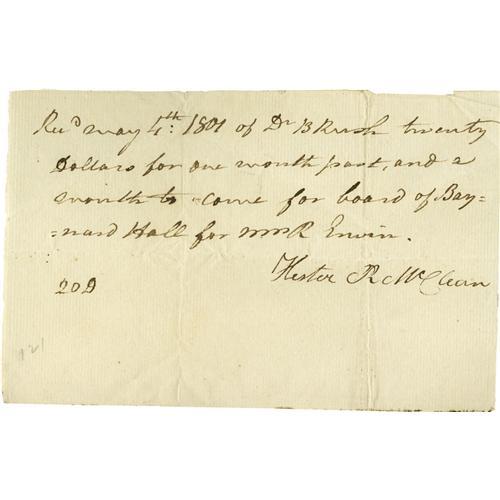 Recd may 4th: 1801 of Dr B Rush twenty
Dollars for one month past, and a
month to come for board of Bay=
=nard Hall for Mrs R Erwin.
Hester R McClean
20D
121